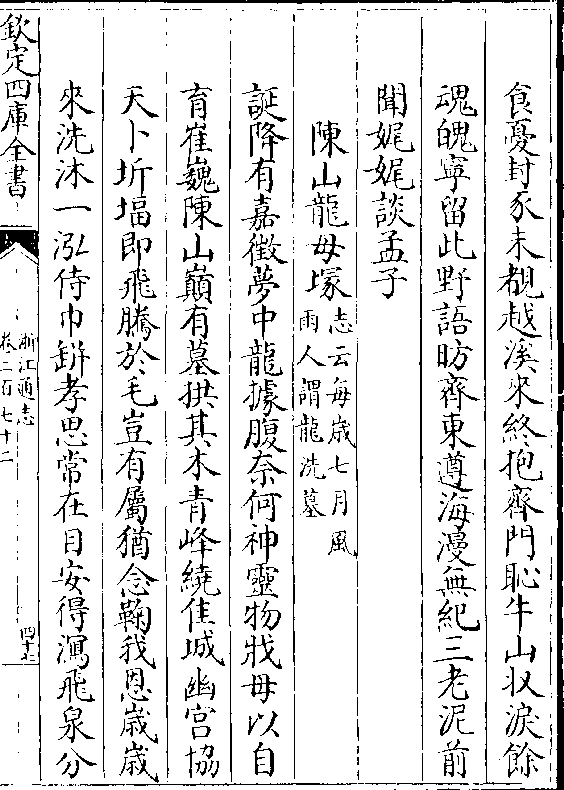 食憂封豕未覩越溪來終抱齊門恥牛山㳄淚餘
魂魄寧留此野語昉齊東遵海漫無紀三老泥前
聞娓娓談孟子
陳山龍母塚志云每歲七月風
雨人謂龍洗墓
誕降有嘉徵夢中龍據腹奈何神靈物戕母以自
育崔巍陳山巔有墓拱其木青峰繞佳城幽宮協
天卜坼堛即飛騰於毛豈有屬猶念鞠我恩歳歳
來洗沐一泓侍巾缾孝思常在目安得瀉飛泉分
欽定四庫全書
浙江通志
卷二百七十二
四十七